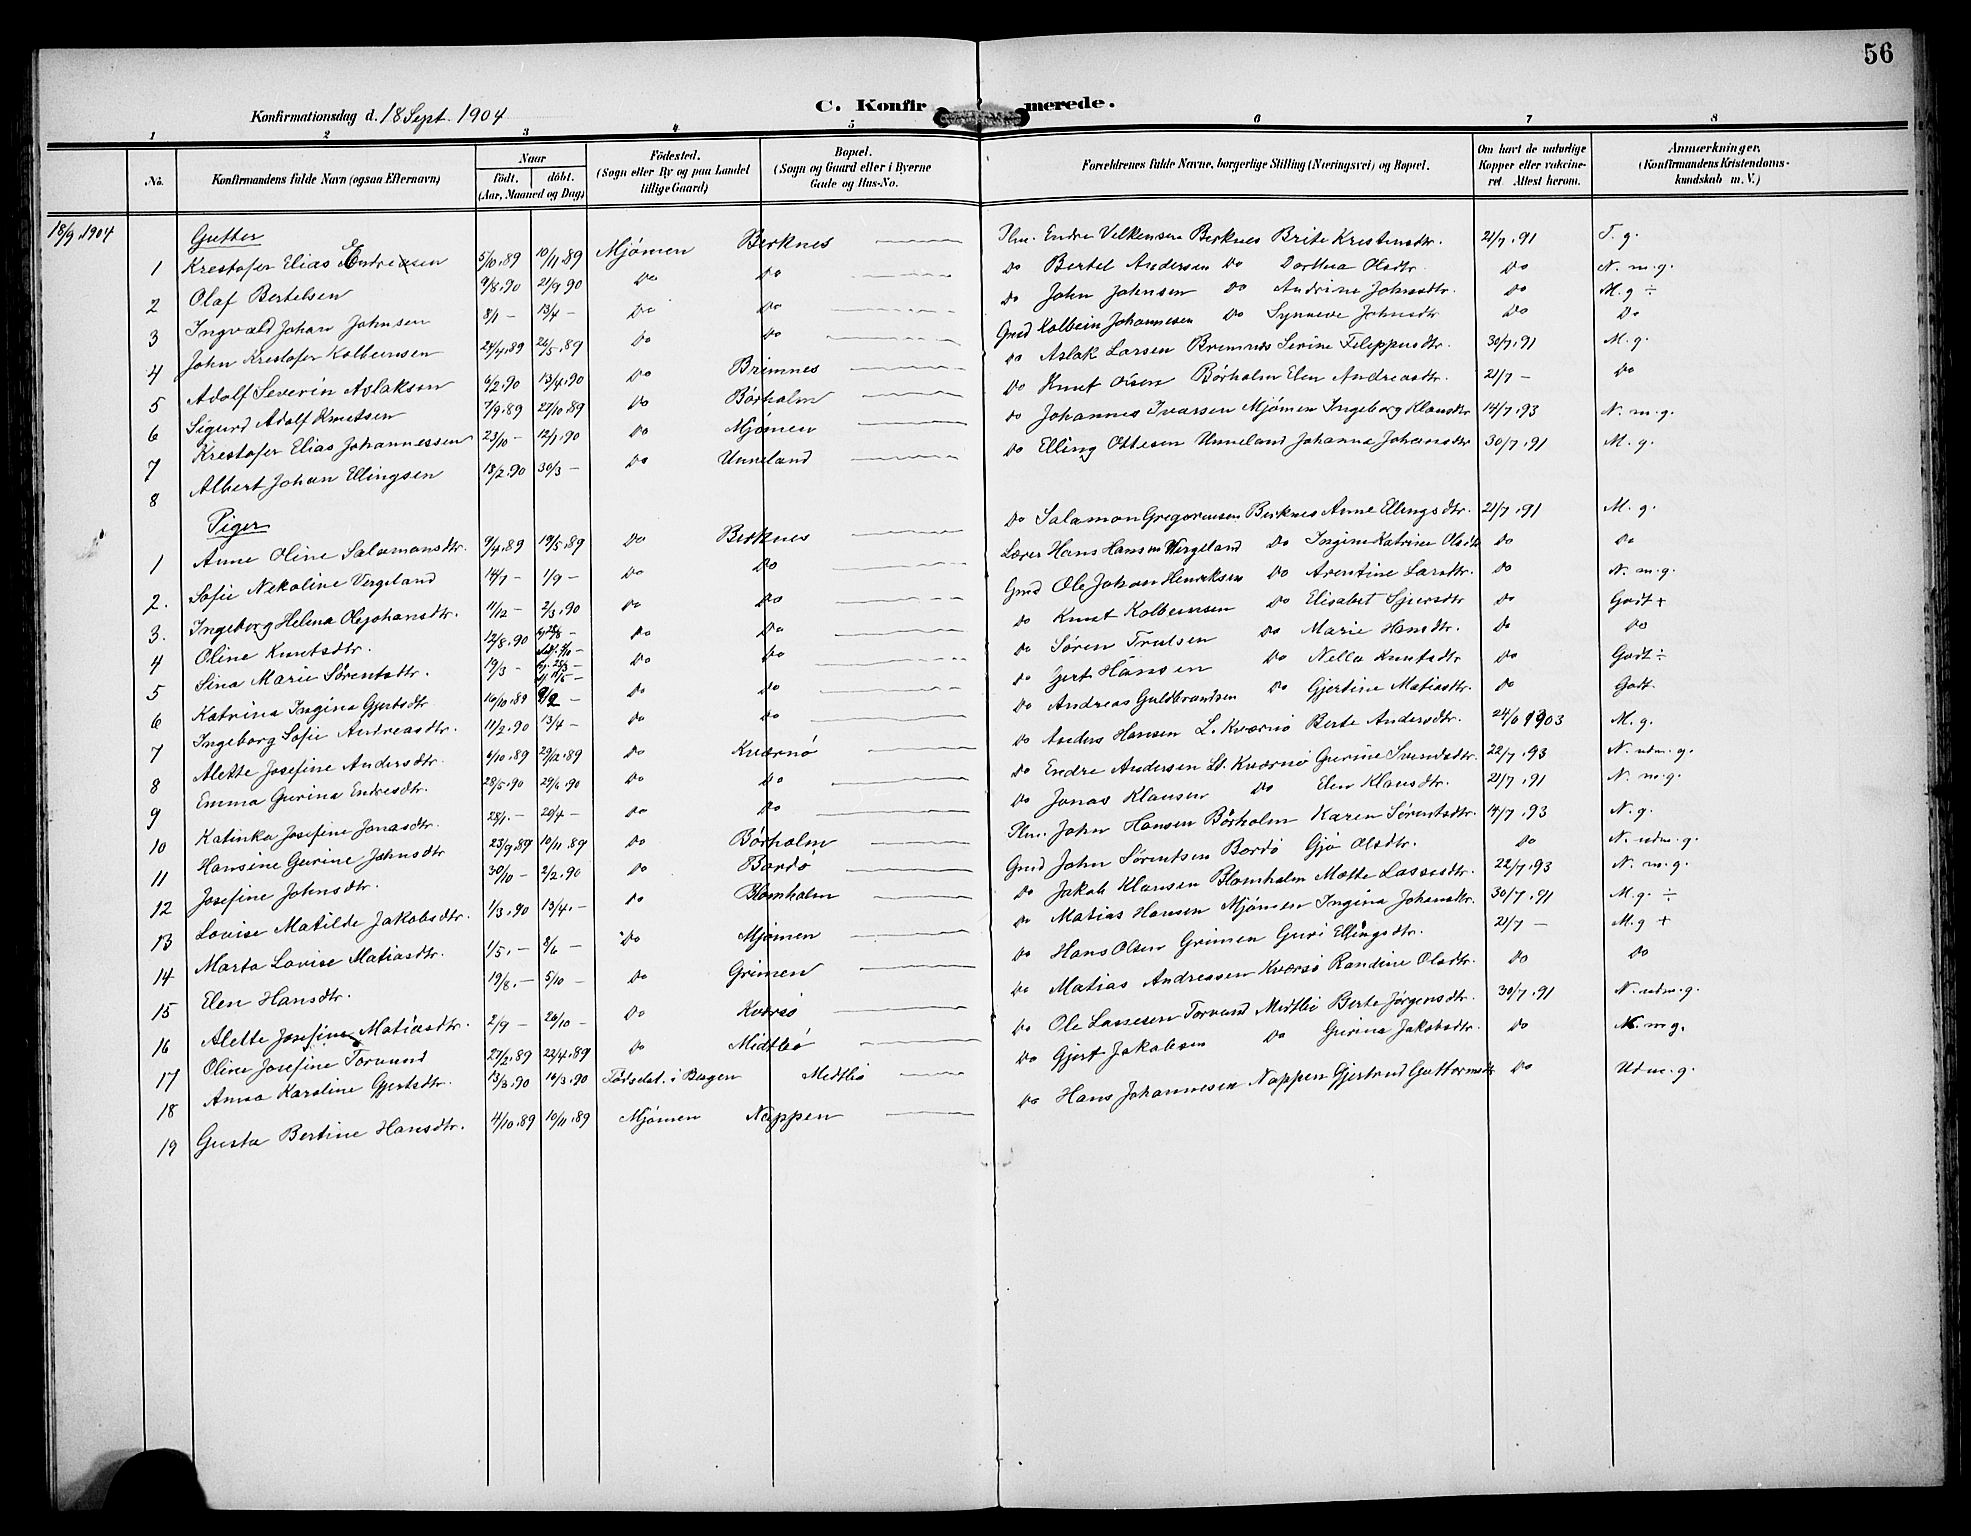 56
C. Konfirmerede.
Konfirmationsdag d. 18 Sept. 1904
1 2 3 4 5 6 7 8
No. Konfirmandens fulde Navn (ogsaa Efternavn) Naar født. døbt. (Aar, Maaned og Dag) Fødested. (Sogn eller By og paa Landet tillige Gaard) Bopæl. (Sogn og Gaard eller i Byerne Gade og Hus-No. Forældrenes fulde Navne, borgerlige Stilling (Næringsvei) og Bopæl. Om havt de naturlige Kopper eller vaccineret Attest herom. Anmærkninger, (Konfirmandens Kristendomskundskab m. V.)
18/9 1904 Gutter
1 Krestofer Elias Endresen 5/10.89 10/11.89 Mjömen Berknes Plm. Endre Velkensen Berknes Brite Krestensdtr. 21/7.91 T. g.
2 Olaf Bertelsen 9/8.90 21/9 90 Do Do Do Bertel Andersen Do Dorthea Olsdtr. Do N. m. g.
3 Ingvald Johan Johnsen 8/1 – 13/4 – Do Do Do John Johnsen Do Andrine Johnsdtr. Do M. g ÷
4 John Krestofer Kolbeinsen 24/4.89 26/5.89 Do Do Gmd Kolbein Johannesen Do Synneve Johnsdtr Do Do
5 Adolf Severin Aslaksen 6/2.90 13/4.90 Do Brimnes Do Aslak Larsen Bremnes Serine Fileppusdtr. 30/7.91 M. g.
6 Sigurd Adolf Knutsen 7/9.89 27/10.89 Do Börholm Do Knut Olsen Börholm Elen Andreasdtr. 21/7 – Do
7 Krestofer Elias Johannessen 23/10 – 12/1.90 Do Mjömen Do Johannes Ivarsen Mjömen Ingeborg Klausdtr 14/7.93 N. m. g.
8 Albert Johan Ellingsen 18/2.90 30/3 – Do Unneland Do Elling Ottesen Unneland Johanna Johansdtr 30/7.91 M. g.
Piger
1 Anne Oline Salamonsdtr. 9/4.89 19/5.89 Do Berknes Do Salamon Gregoriusen Berknes Anne Ellingsdtr. 21/7.91 M. g.
2. Sofie Nekoline Vergeland 14/7 – 1/9 – Do Do Lærer Hans Hansen Vergeland Do Ingine Katrine Olsdtr Do Do
3. Ingeborg Helena Olejohansdtr. 11/12 – 2/3.90 Do Do Gmd Ole Johan Henriksen Do Arentine Larsdtr. Do N. m. g.
4 Oline Knutsdtr. 12/8.90 Do Do Do Knut Kolbeinsen Do Elisabet Sjursdtr Do Godt +
5 Sina Marie Sørentsdtr. 19/3 – Do Do Do Søren Trulsen Do Marie Hansdtr. Do Do
6 Katrina Ingina Gjertsdtr 16/10.89 9/2 – Do Do Do Gjert Hansen Do Nella Knutsdtr Do Godt ÷
7 Ingeborg Sofie Andreasdtr. 11/2.90 13/4 – Do Do Do Andreas Guldbrandsen Do Gjertine Matiasdtr. Do Godt.
8 Alette Josefine Andersdtr. 6/10.89 29/12.89 Do Kværnö Do Anders Hansen L. Kværnö Berte Andersdtr. 24/6 1903 M. g.
9 Emma Gurina Endresdtr. 28/5.90 29/6.90 Do Do Do Endre Andersen Lt. Kværnö Gurine Svendsdtr. 22/7.93 N. udm. g.
10 Katinka Josefine Jonasdtr. 28/1. – 20/4 – Do Do Do Jonas Klausen Do Elen Klausdtr. 21/7.91 N. m. g.
11 Hansine Gurine Johnsdtr 23/9.89 10/11.89 Do Börholm Plm. John Hansen Börholm Karen Sørentsdtr. 14/7.93 N. g.
12 Josefine Johnsdtr. 30/10 – 2/2.90 Do Bardö Gmd John Sørentsen Bardö Gjö Olsdtr. Do N. udm. g.
13 Lovise Matilde Jakobsdtr. 1/3.90 13/4. – Do Blomholm Do Jakob Klausen Blomholm Mette Lassesdtr. 22/7.93 N. m. g.
14 Marta Lovise Matiasdtr. 1/5. – 8/6 – Do Mjömen Do Matias Hansen Mjömen Ingina Johansdtr. 30/7.91 M. g. ÷
15 Elen Hansdtr. 19/8. – 5/10 – Do Grimen Do Hans Olsen Grimen Guri Ellingsdtr. 21/7 – M. g +
16 Alette Josefine Matiasdtr. 2/9 – 26/10 – Do Kværsö Do Matias Andreasen Kværsö Randine Olsdtr. Do Do
17 Oline Josefine Torvund 27/2.89 22/4.89 Do Midtbö Do Ole Lassesen Torvund Midtbö Berte Jörgensdtr. 30/7.91 N. udm. g.
18 Anna Karoline Gjertsdtr. 13/3.90 16/3.90 Födselst. i Bergen Midtbö Do Gjert Jakobsen Do Gurina Jakobsdtr. Do N. m g.
19 Gusta Bertine Hansdtr. 4/10.89 10/11.89 Mjömen Nappen Do Hans Johannesen Nappen Gjertrud Guttormsdtr Do Udm. g.